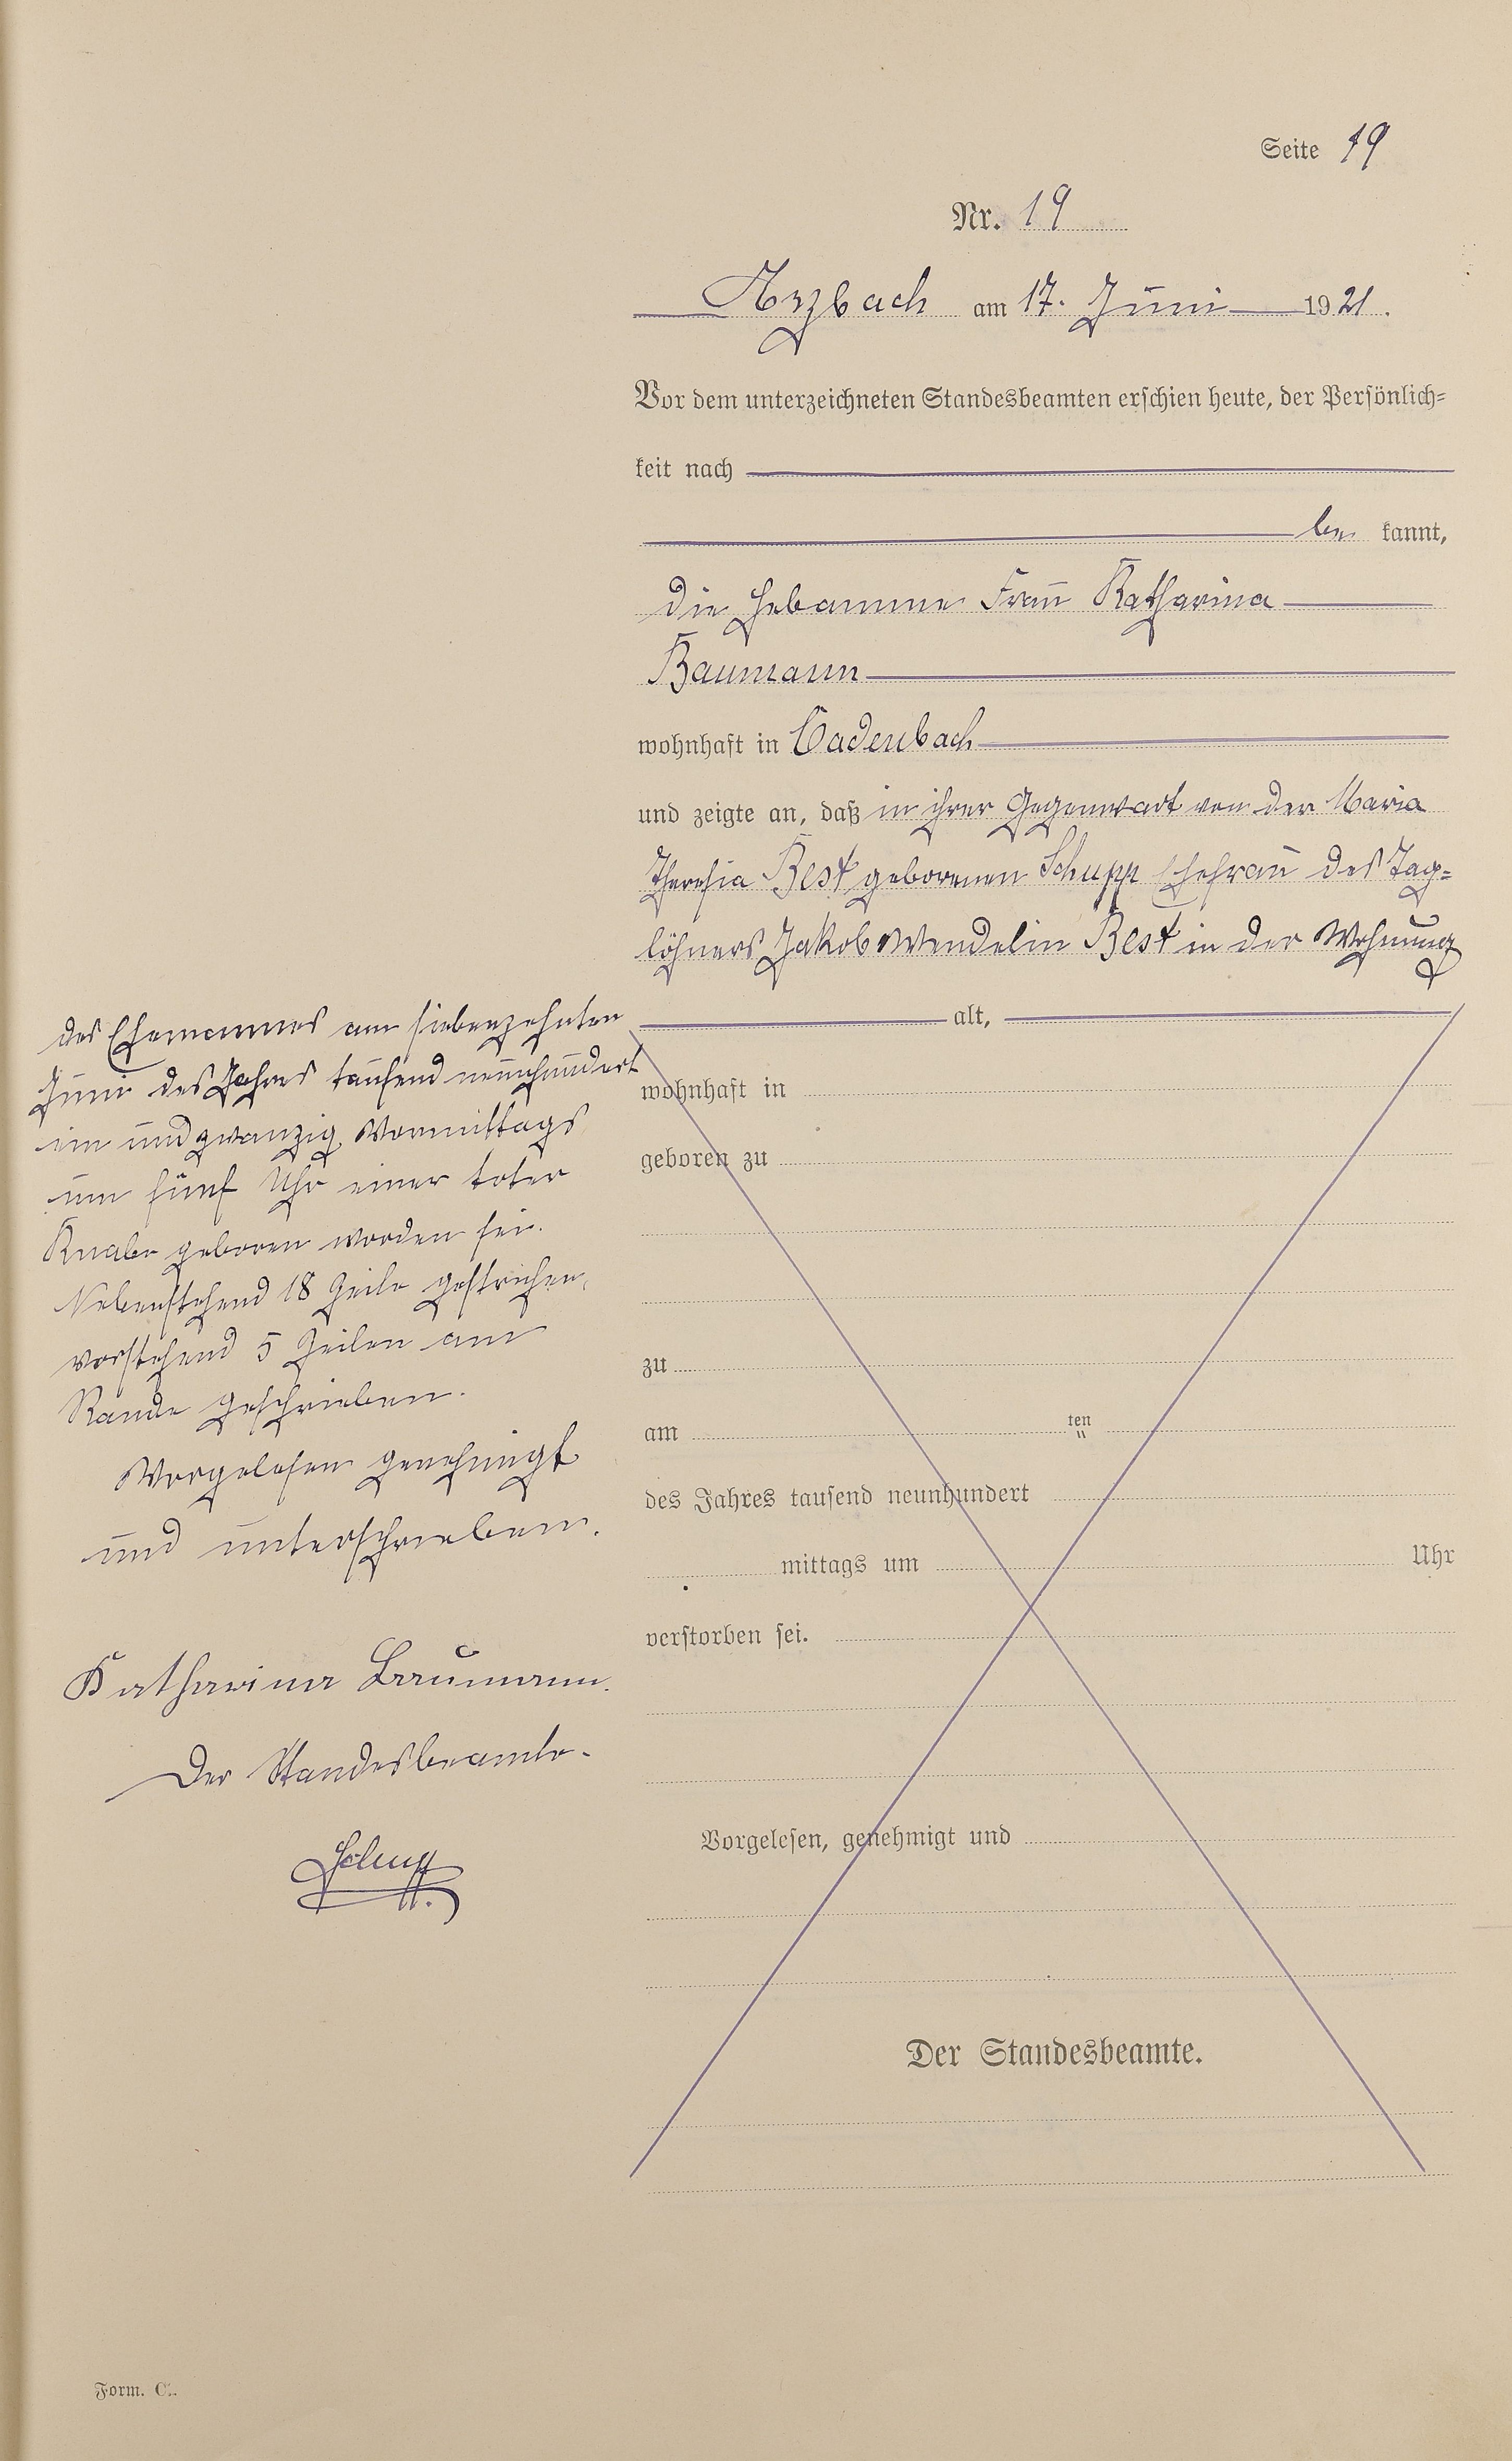 Seite 19
Nr. 19
Arzbach am 17. Juni 1921.
Vor dem unterzeichneten Standesbeamten erschien heute, der Persönlich=
keit nach
be kannt,
die Hebamme Frau Katharina
Baumann
wohnhaft in Cadenbach
und zeigte an, daß in ihrer Gegenwart von der Maria
Theresia Best geborenen Schupp Ehefrau des Tag=
löhners Jakob Wendelin Best in der Wohnung
des Ehemannes am siebenzehnten
Juni des Jahres tausend neunhundert
ein und zwanzig Vormittags
um fünf Uhr einer toter
Knabe geboren worden sei.
Nebenstehend 18 Zeile gestrichen,
vorstehend 5 Zeilen am
Rande geschrieben.
Vorgelesen genehmigt
und unterschrieben.
Katharina Baumann.
Der Standesbeamte.
alt,
wohnhaft in
geboren zu
zu
am ten
des Jahres tausend neunhundert
mittags um Uhr
verstorben sei.
Vorgelesen, genehmigt und
Der Standesbeamte.
Form. C.